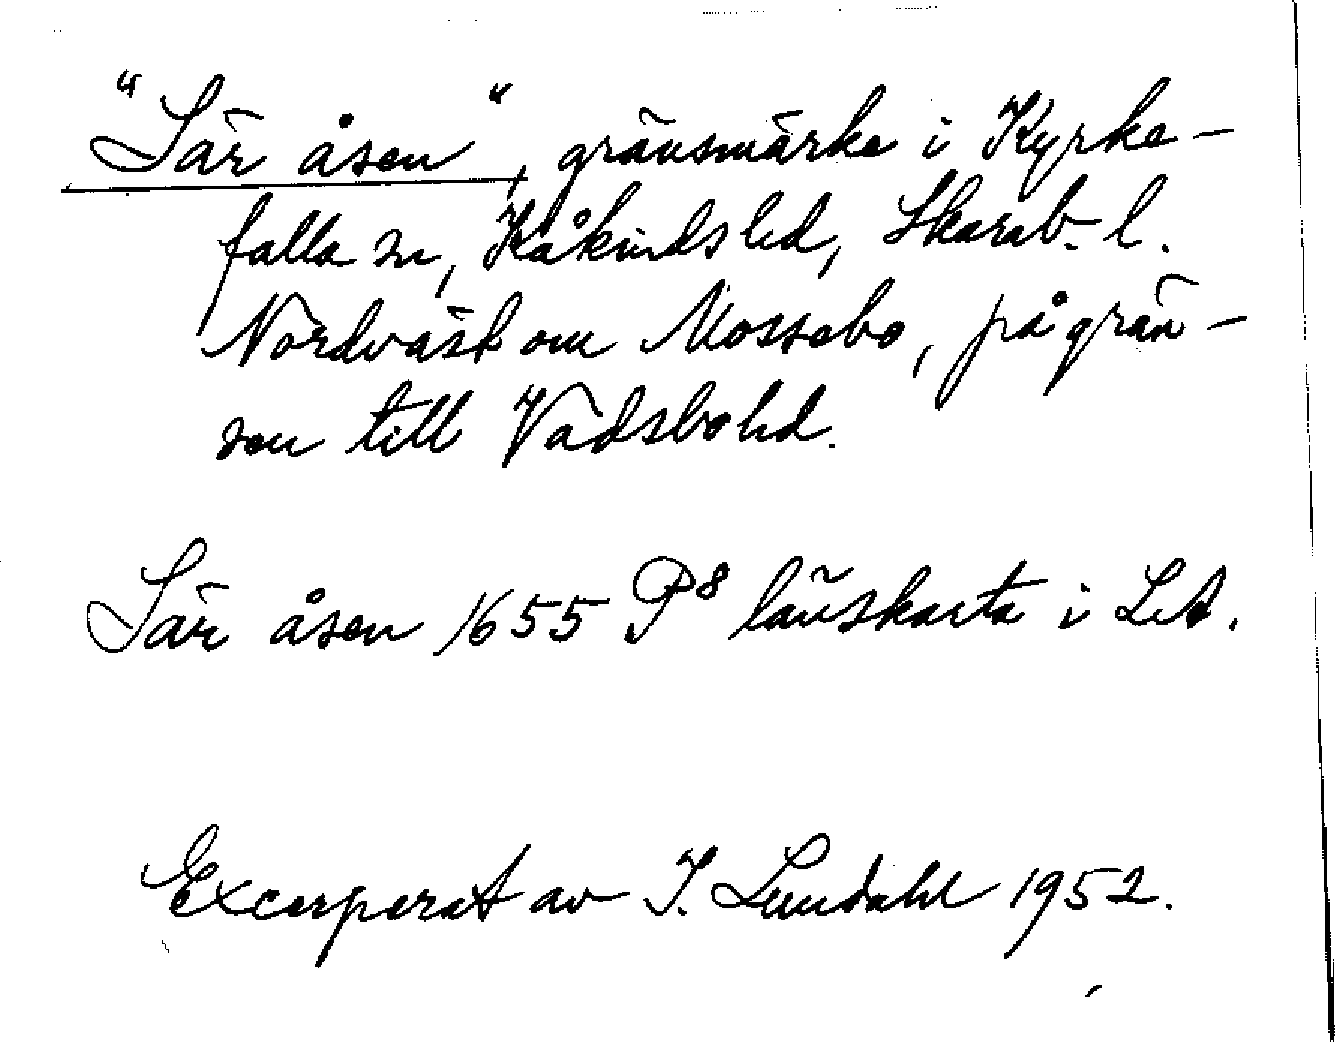 "Sär åsen", gränsmärke i Kyrke-
falla sn, Kåkinds hd, Skarab. l.
Nordväst om Mossebo, på grän-
sen till Vadsbo hd.
Sär åsen 1655 P⁸ länskarta i LA.
Excerperat av I. Lundahl 1952.